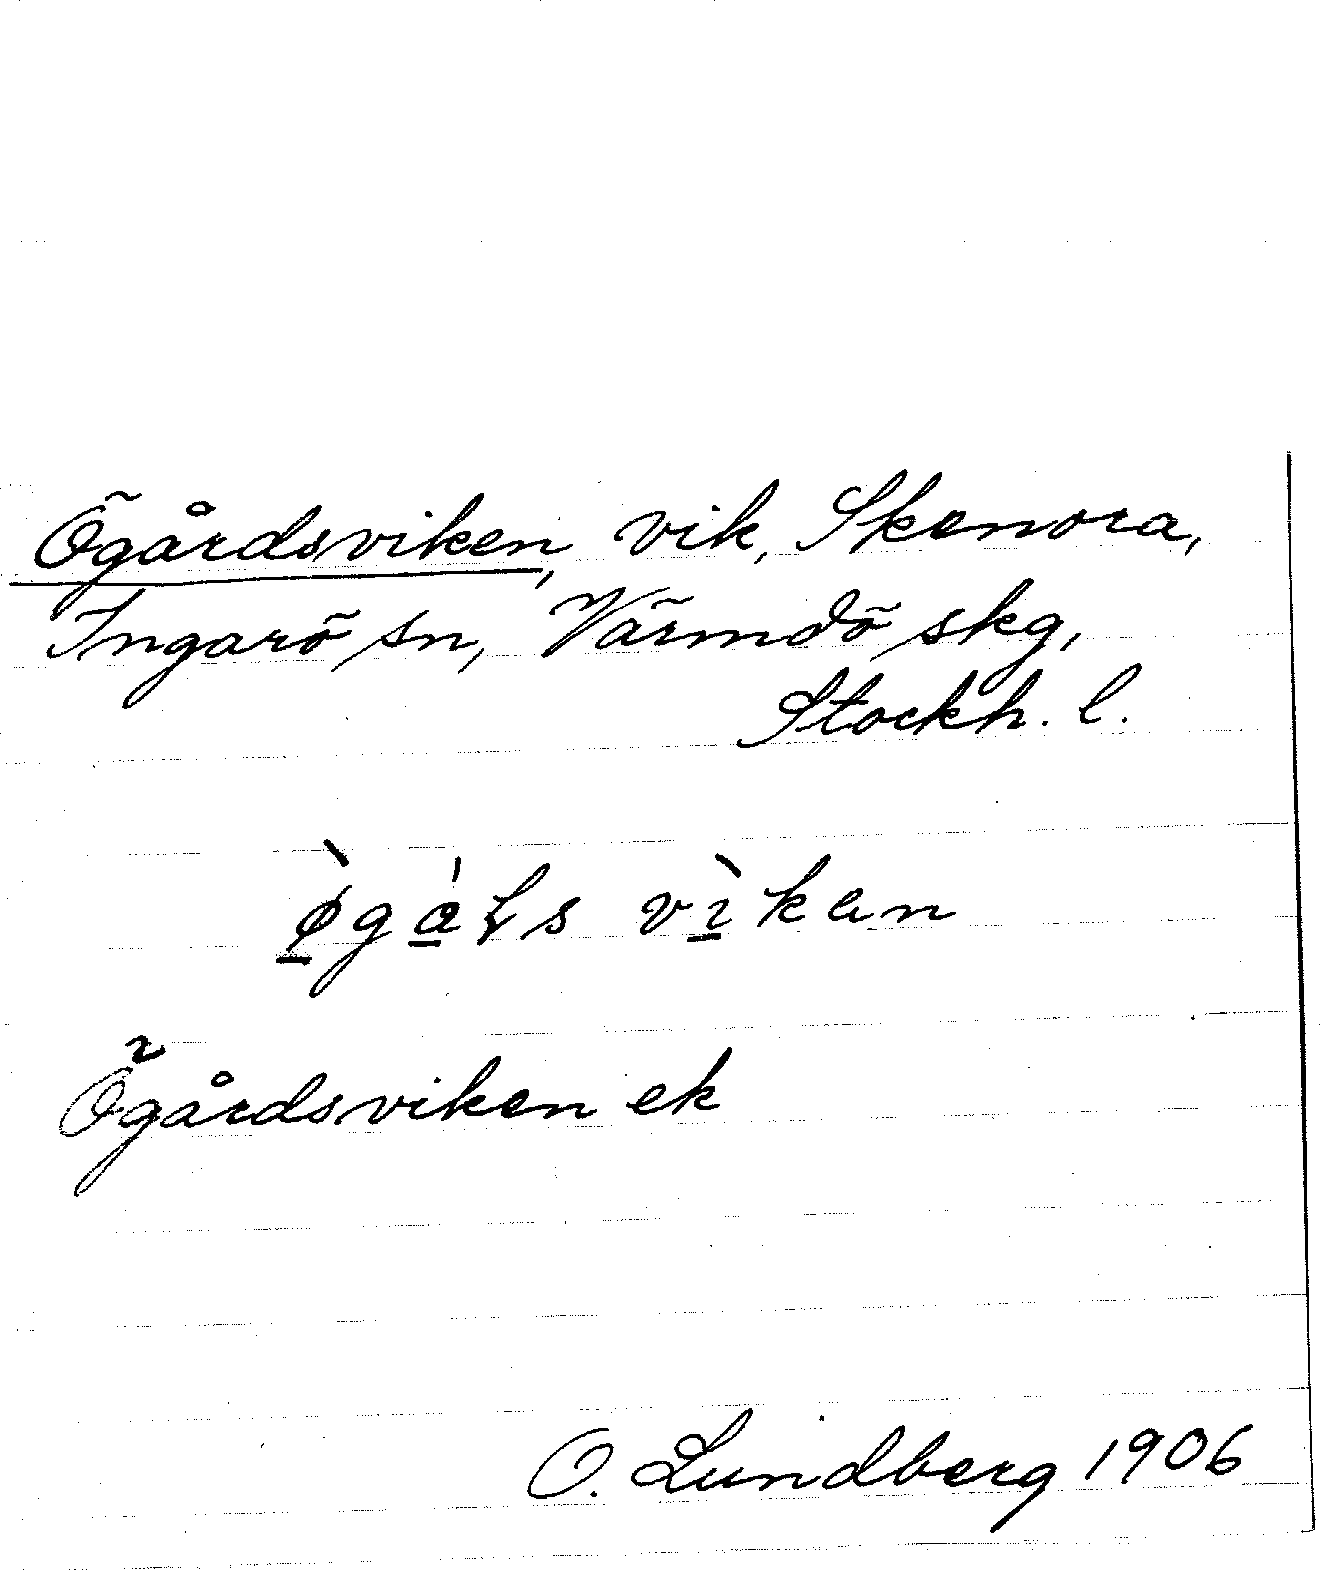 Ögårdsviken, vik, Skenora,
Ingarö sn, Värmdö skg,
Stockh. l.
ø̀gáɽs vìkan
Ögårdsviken ek
O. Lundberg 1906